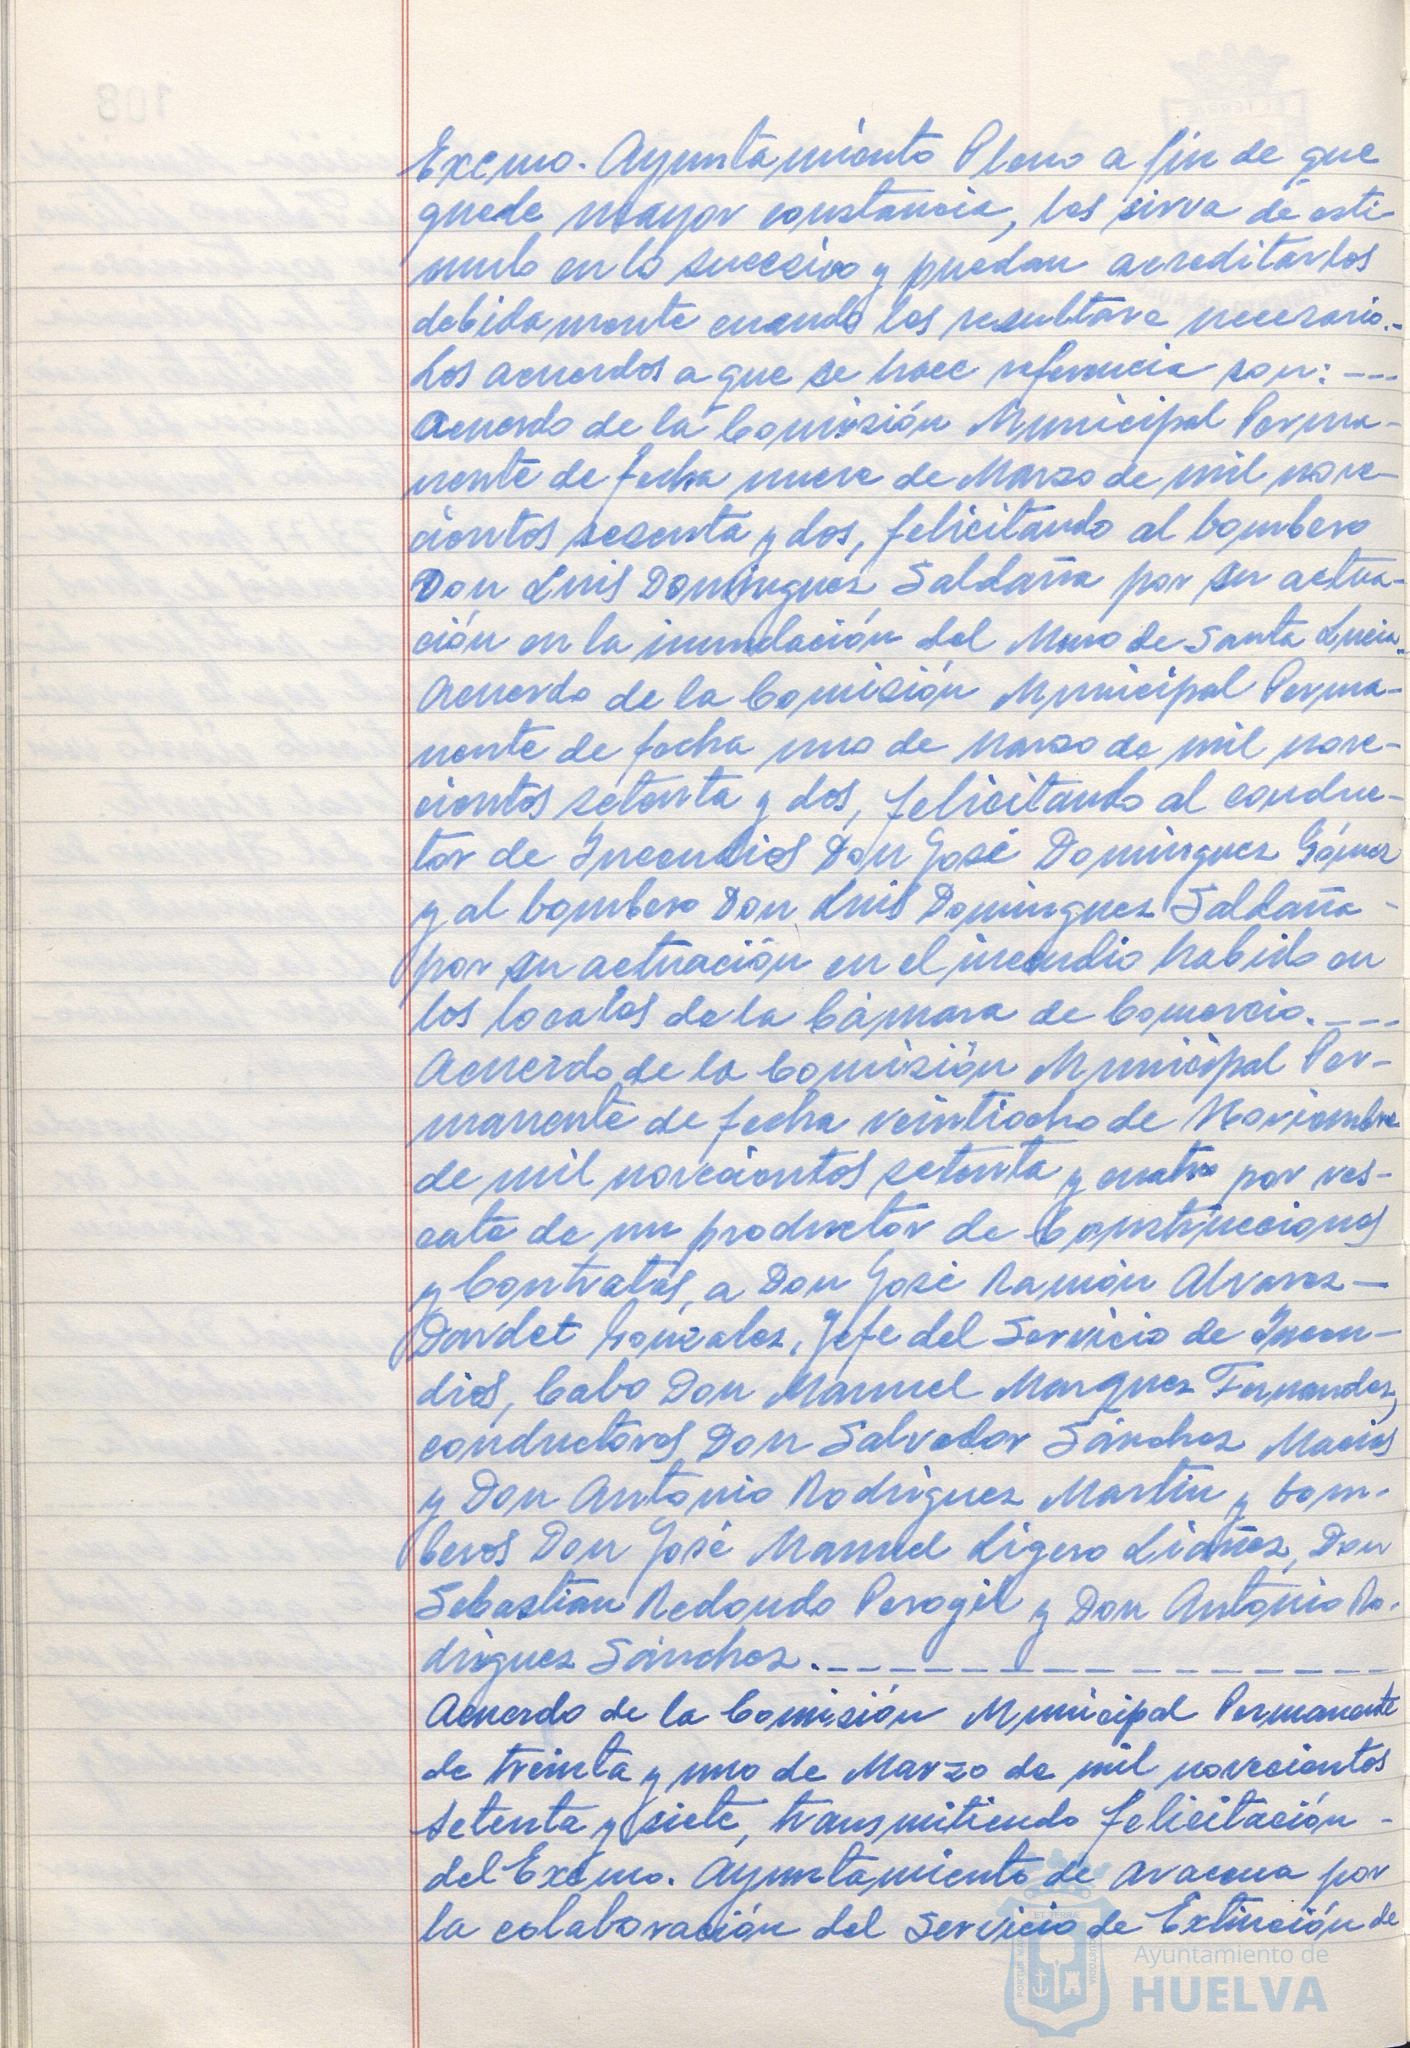 Excmo. Ayuntamiento Pleno a fin de que
quede mayor constancia, les sirva de estí-
mulo en lo sucesivo y puedan acreditarlos
debidamente cuando les resultare necesario.-
Los acuerdos a que se hace referencia son: ---
Acuerdo de la Comisión Municipal Perma-
nente de fecha nueve de Marzo de mil nove-
cientos sesenta y dos, felicitando al bombero
Don Luis Dominguez Saldaña por su actua-
ción en la inundación del Muro de Santa Lucia..
Acuerdo de la Comisión Municipal Perma-
nente de fecha uno de Marzo de mil nove-
cientos setenta y dos, felicitando al conduc-
tor de Incendios Don José Dominguez Gómez
y al bombero Don Luis Dominguez Saldaña -
por su actuación en el incendio habido en
los locales de la Cámara de Comercio. ---
Acuerdo de la Comisión Municipal Per-
manente de fecha veintiocho de Noviembre
de mil novecientos setenta y cuatro por res-
cate de un productor de Construcciones
y Contratas, a Don José Ramón Alvarez-
Dardet González, Jefe del Servicio de Incen-
dios, Cabo Don Manuel Marquez Fernandez,
conductores Don Salvador Sánchez Macias
y Don Antonio Rodriguez Martin y bom-
beros Don José Manuel Ligero Liañez, Don
Sebastian Redondo Perogil y Don Antonio Ro-
driguez Sánchez. - - - - - - - - - - - - - - - -
Acuerdo de la Comisión Municipal Permanente
de treinta y uno de Marzo de mil novecientos
setenta y siete, transmitiendo felicitación -
del Excmo. Ayuntamiento de Aracena por
la colaboración del Servicio de Extinción de
Ayuntamiento de
HUELVA